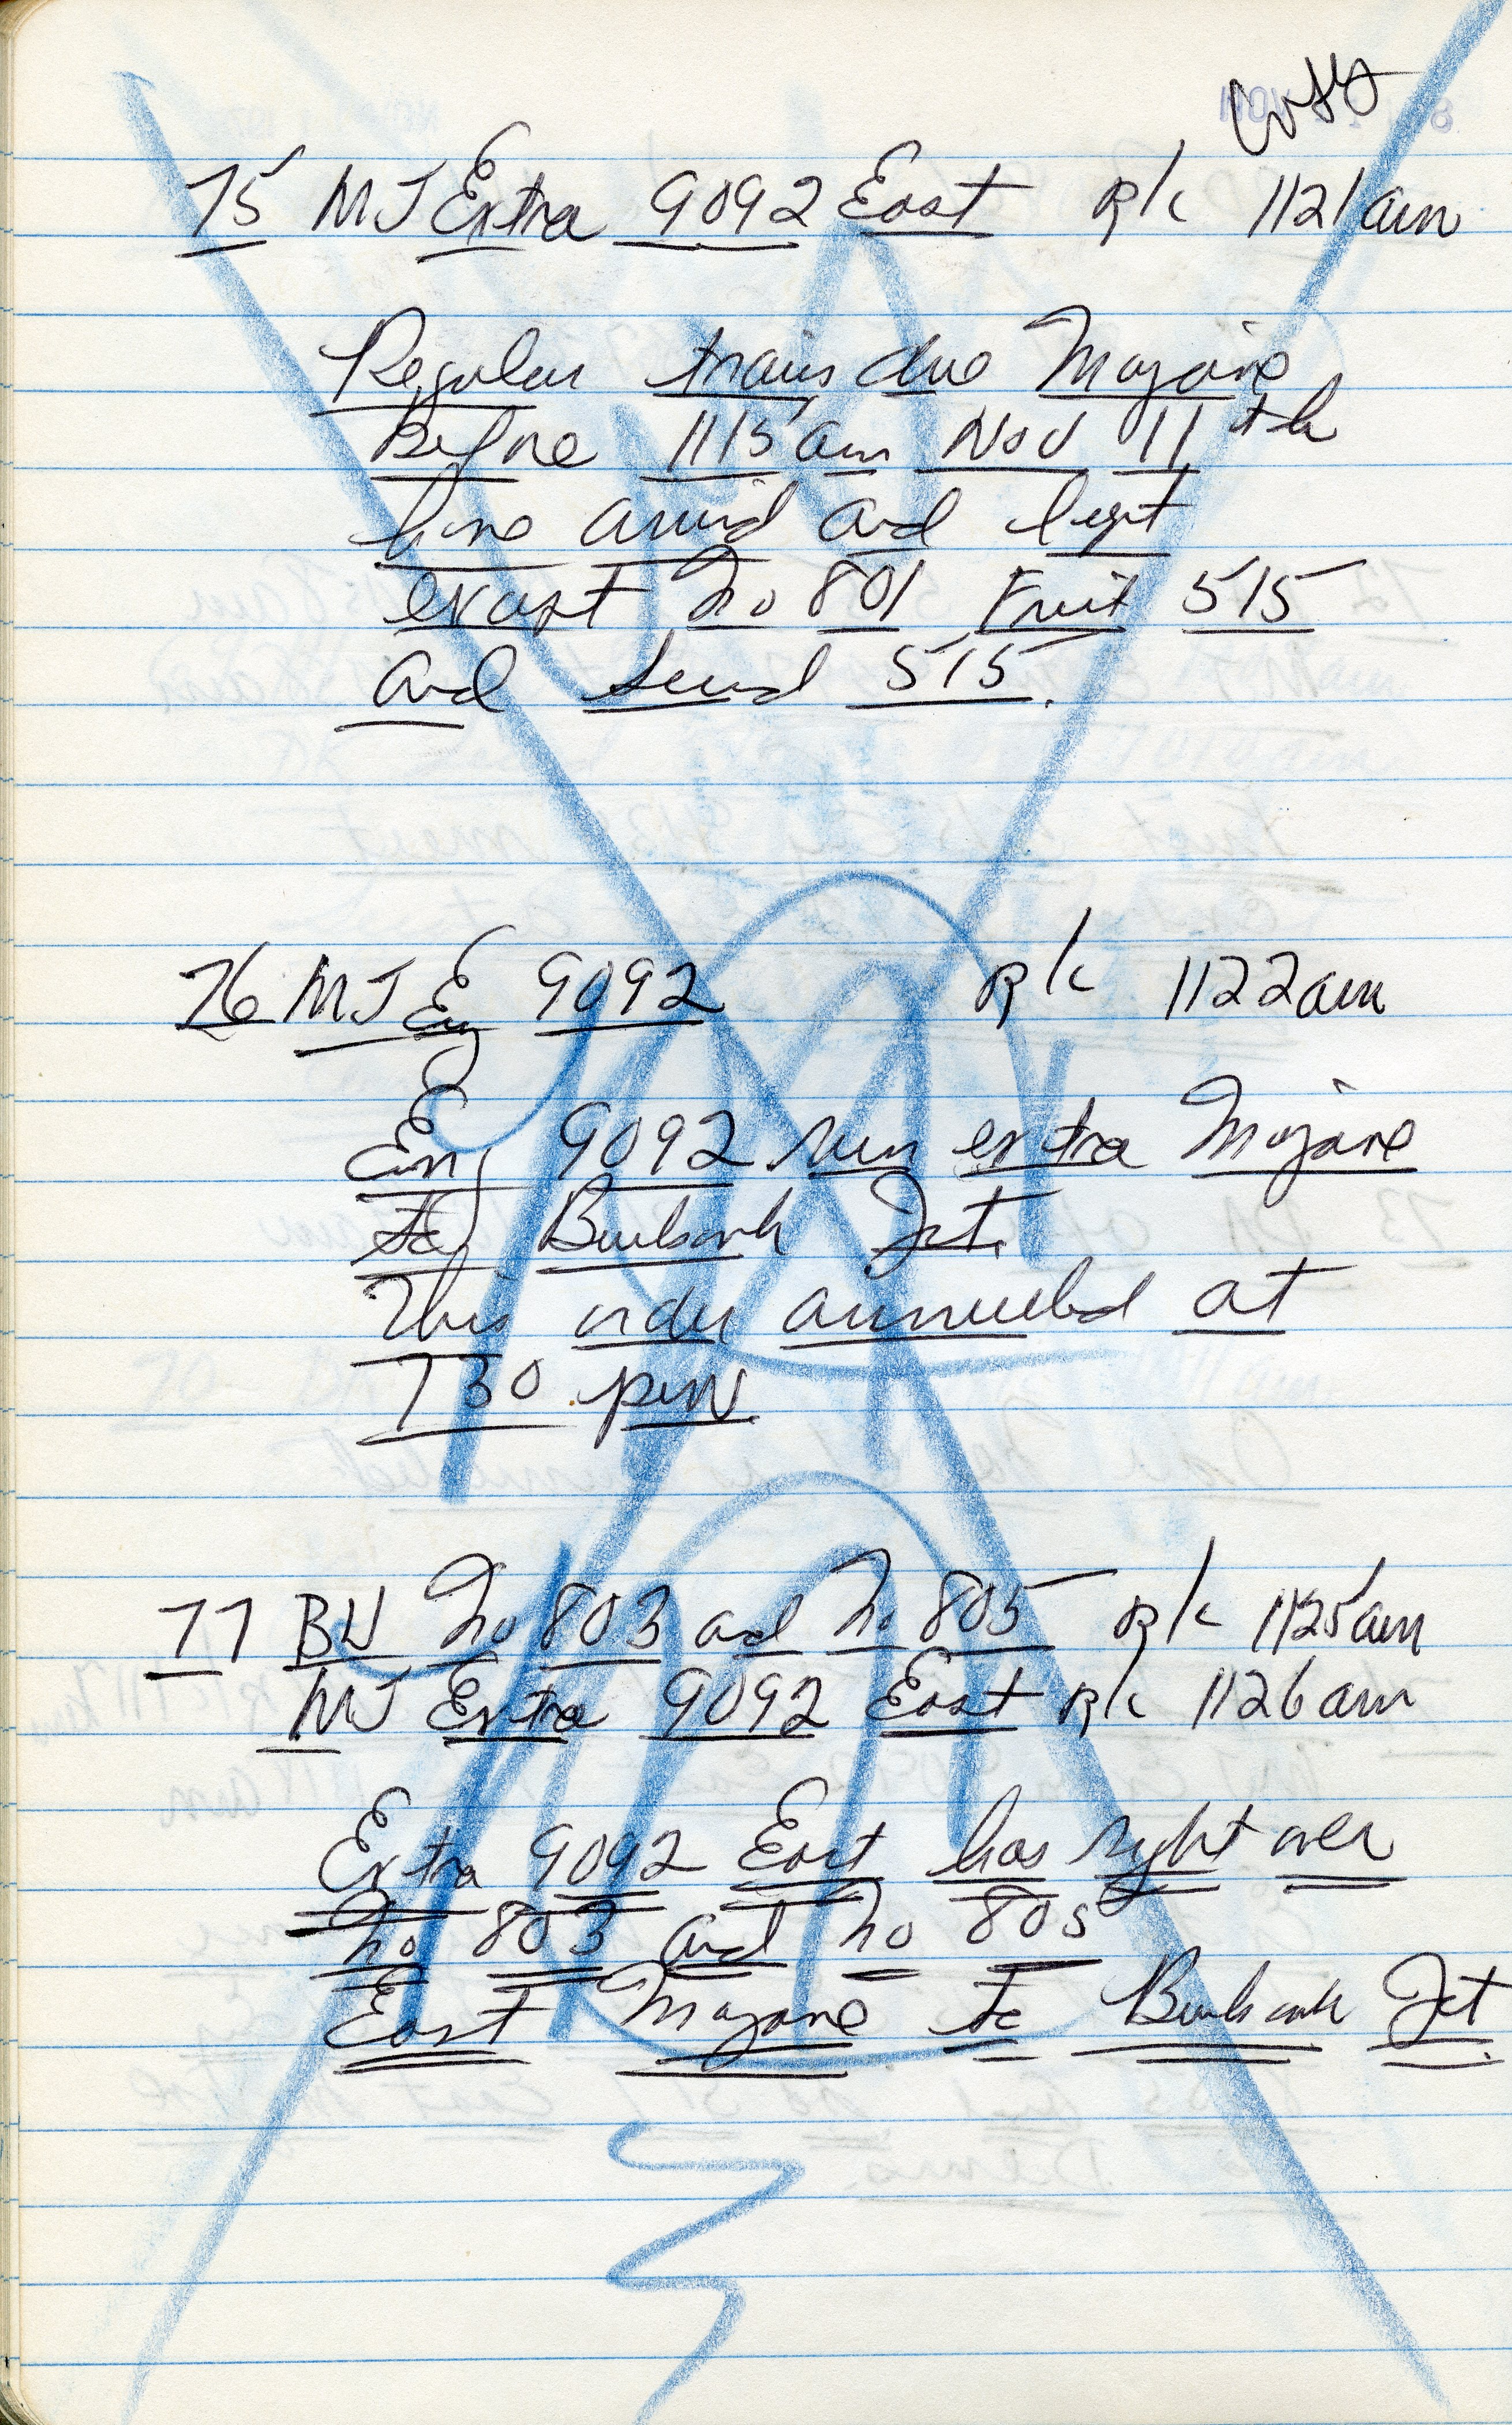 75 MJ Extra 9092 East R/c 1121am
Regular trains due Mojave
Before 1115am Nov 11th
have arrivd and left
except No 801 First 515
and Secnd 515.
76 MJ Eng 9092 R/c 1122am
Eng 9092 run extra Mojave
to Burbank Jct.
This order annulled at
730 pm
77 BU No 803 and No 805 R/c 1125am
MJ Extra 9092 East R/c 1126am
Extra 9092 East has right over
No 803 and No 805
East Mojave to Burbank Jct.